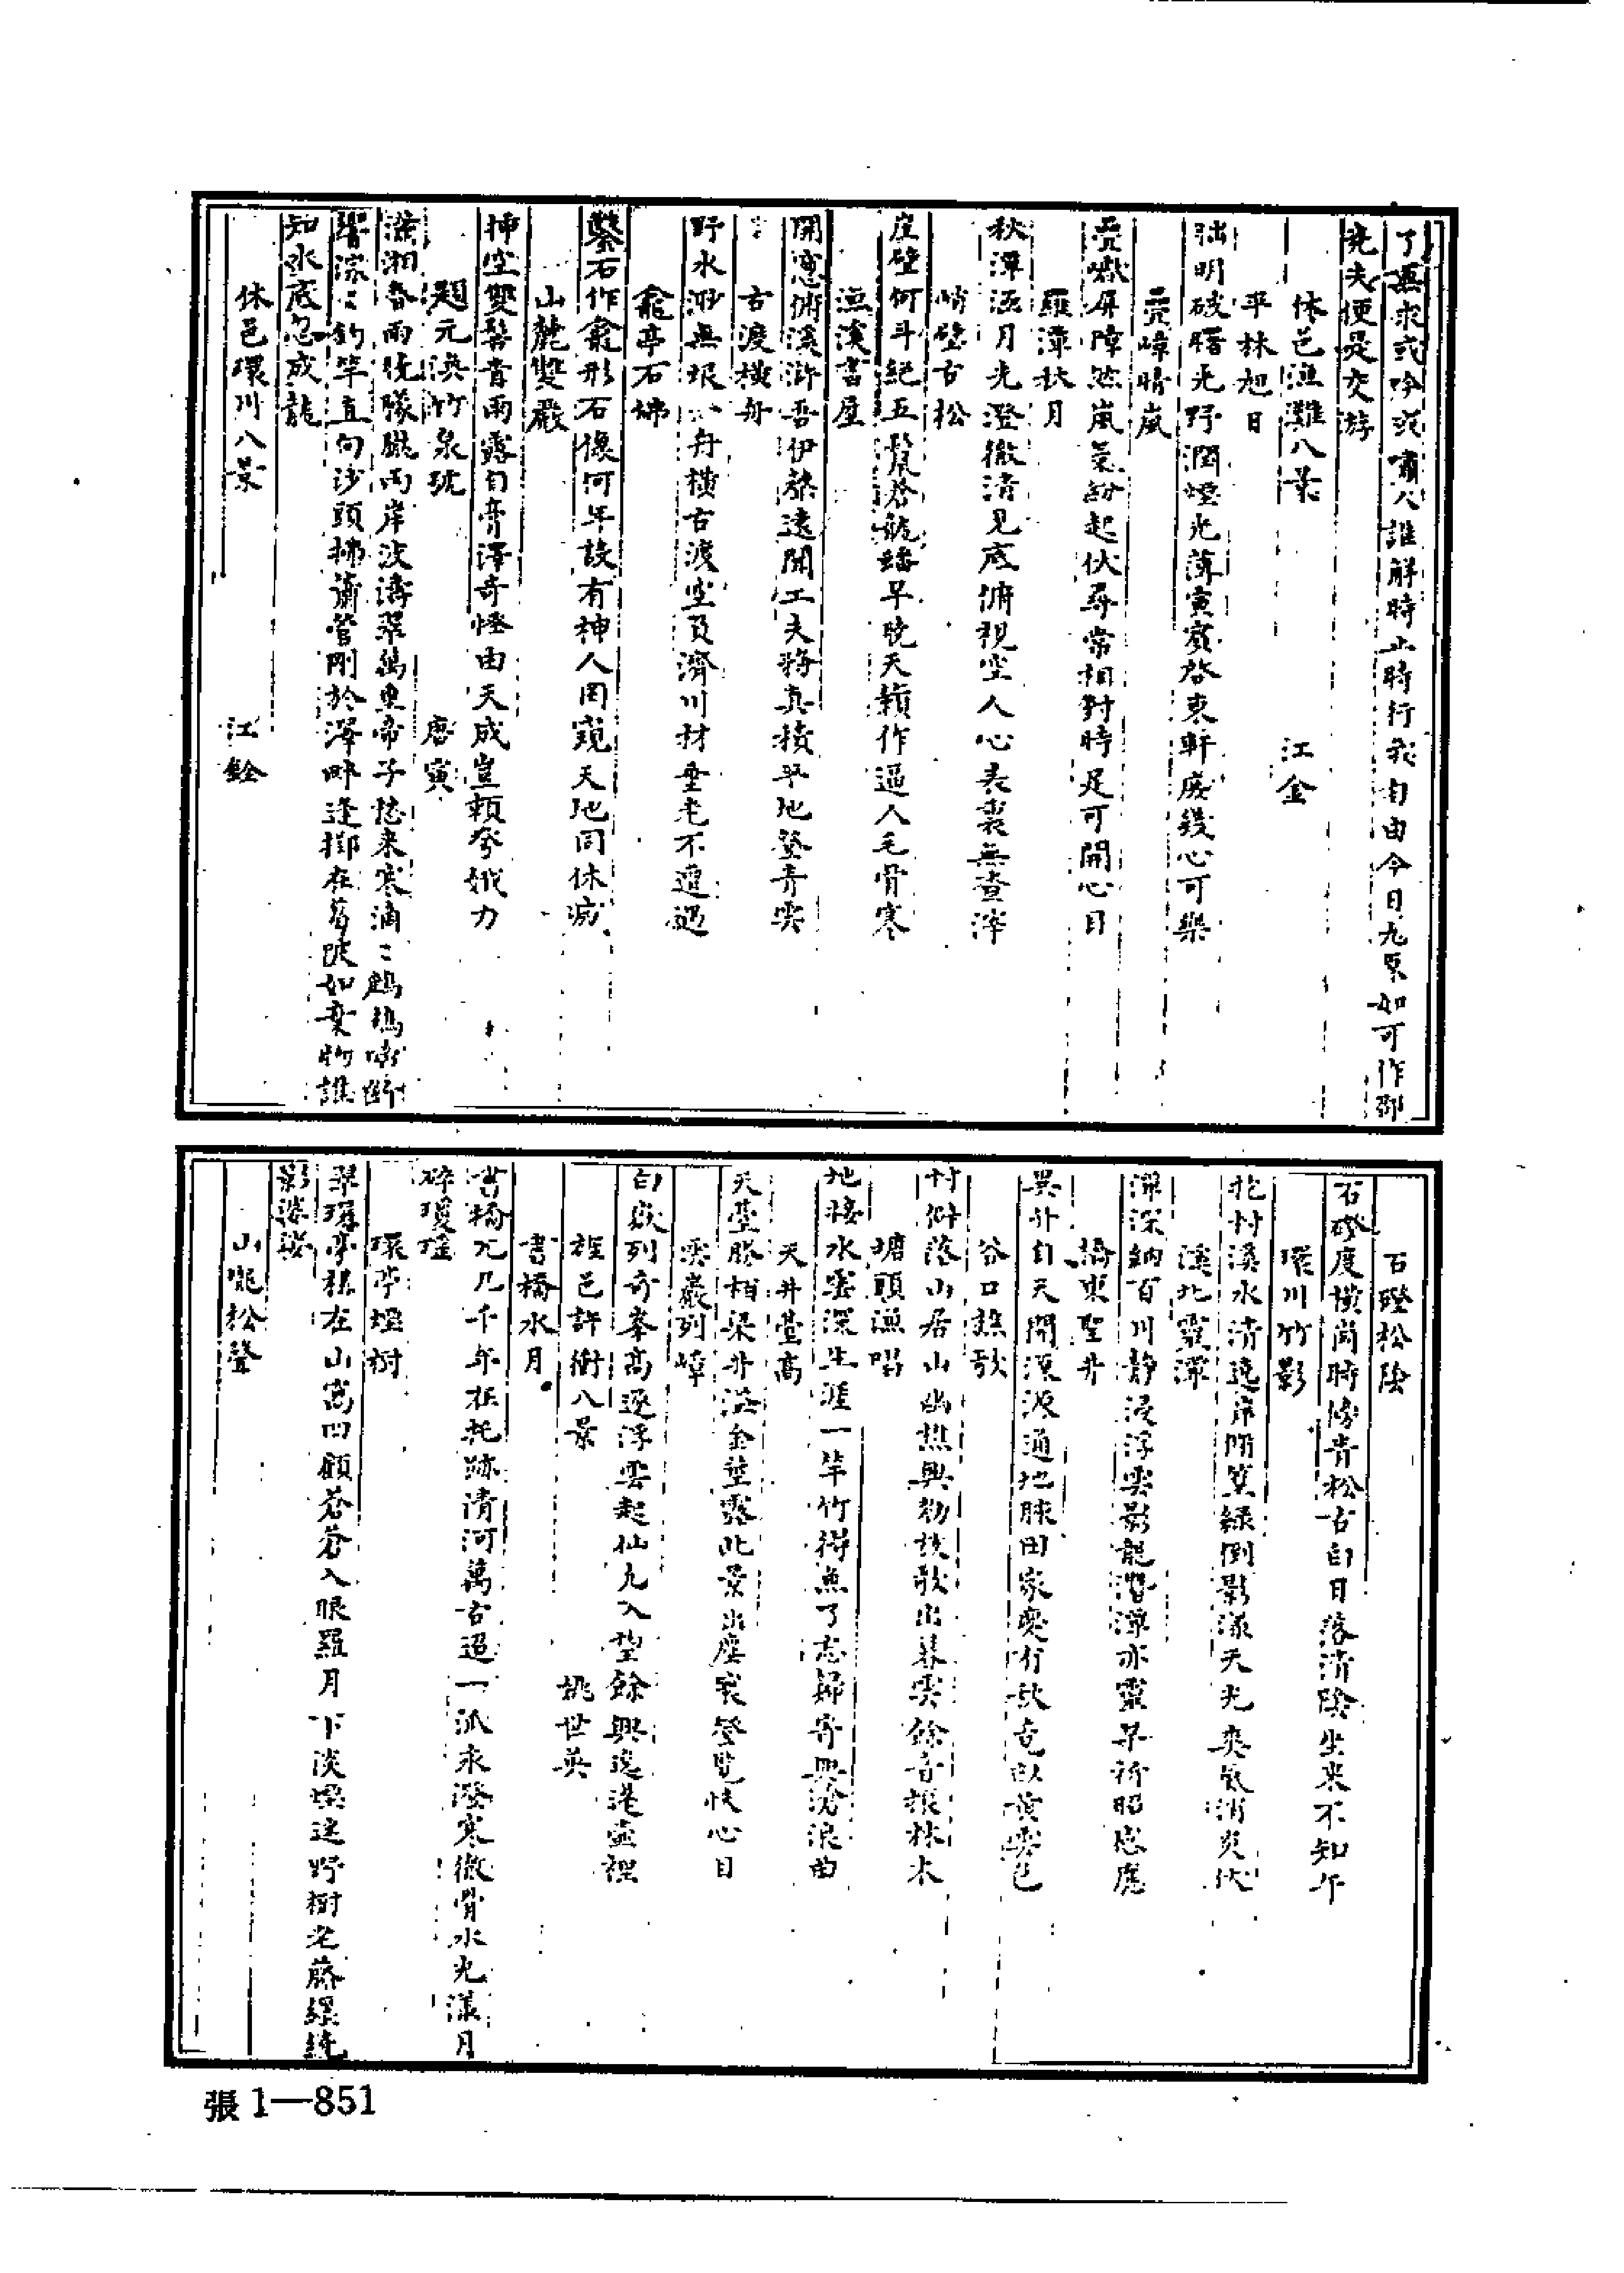 了無求或吟或嘯人誰解時止時行我自由今日九原如可作邵
堯夫便是交游
休邑漁灘八景 江金
平林旭日
朏明破曙光野潤煙光薄寅賓啓東軒庶幾心可樂
疊嶂晴嵐
疊巘屏障然嵐氣紛起伏尋常相對時足可開心目
羅潭秋月
秋潭涵月光澄徹清見底俯視空人心表裏無查滓
峭壁古松
崖壁何斗絕五鬣蒼龍蟠早晚天籟作逼人毛骨寒
漁溪書屋
開窻俯溪滸吾伊聲遠聞工夫將真積平地登青雲
古渡橫舟
野水渺無垠 舟橫古渡空負濟川材垂老不遭遇
龕亭石佛
鑿石作龕形石像何年設有神人罔窺天地同休戚
山麓雙巖
挿空雙髻青雨露自膏澤奇怪由天成豈賴夸娥力
題元渙竹泉號 唐寅
瀟湘春雨晚朦朧兩岸波濤翠萬重帝子愁來寒滴〻鷓鴣啼斷
碧深〻釣竿直向沙頭拂簫管刚於澤畔逢擲在葛陂如棄物誰
知水底忽成龍
休邑環川八景 江銓
石磴松陰
石磴度橫崗時傍青松古白日落清陰坐來不知午
環川竹影
花村溪水清遶岸開篔綠倒影漾天光爽氣消炎伏
溪北靈潭
潭深納百川靜浸浮雲影龍潛潭亦靈早祈昭感應
橋東聖井
異井自天開源源通地脉田家慶有秋 臥黃雲色
谷口樵歌
村僻落山居山幽樵興勃枝歌出暮雲餘音振林木
塘頭漁唱
地接水雲深生涯一竿竹得魚了忘歸寄興滄浪曲
天井臺高
天臺勝柏梁井溢金莖露此景出塵寰登覽快心目
雲巖列嶂
白嶽列奇峯高逐浮雲起仙凡入望餘興逸港壺裡
旌邑許衙八景 姚世英
書橋水月
書橋兀兀千年在托跡清河萬古迢一派永澄寒徹骨水光漾月
碎瓊瑤
環亭煙樹
翠環亭構在山窩四顧蒼蒼入眼羅月下淡煙迷野樹老藤縲繞
影婆娑
山窩松聲
張1—851